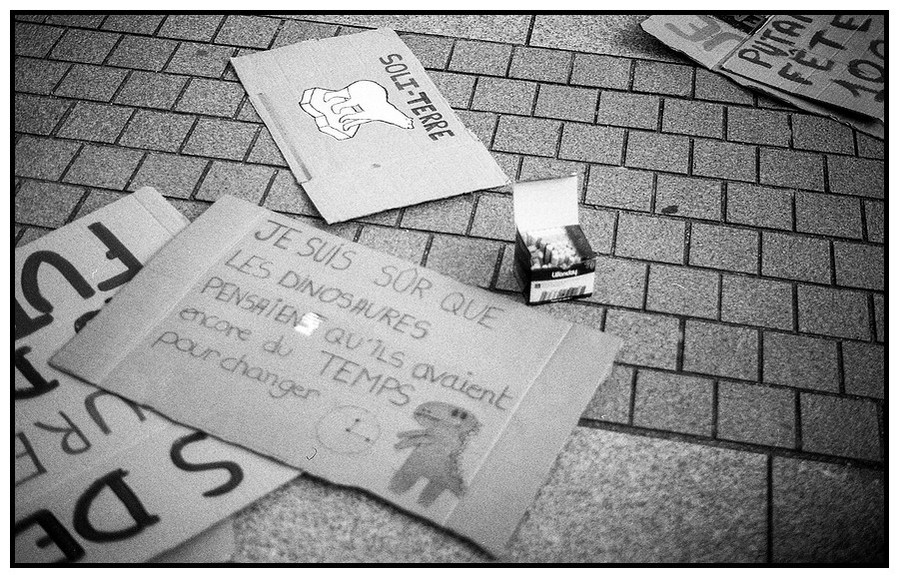 SOLI-TERRE
JE
PUTAI
FÊTE
100
JE SUIS SÛR QUE
LES DINOSAURES
PENSAIENT QU'ILS avaient
encore du TEMPS
pour changer
FU
URE
S
DE